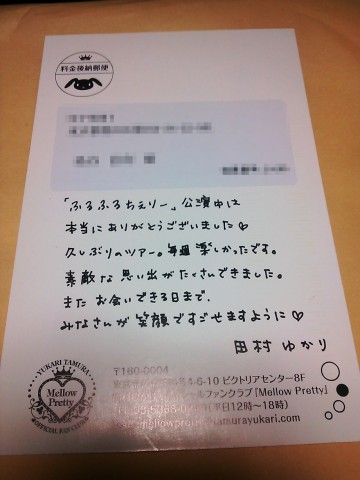 料金後納郵便
「ふるふるちぇりー」公演中は
本当にありがとうございました♡
久しぶりのツアー。毎週楽しかったです。
素敵な思い出がたくさんできました。
また お会いできる日まで、
みなさんが笑顔ですごせますように♡
田村ゆかり
YUKARI TAMURA
Mellow
Pretty
OFFICIAL FAN CLUB
〒160-0004
4-6-10 ビクトリアセンター8F
ファンクラブ「Mellow Pretty」
(平日12時～18時)
tamurayukari.com